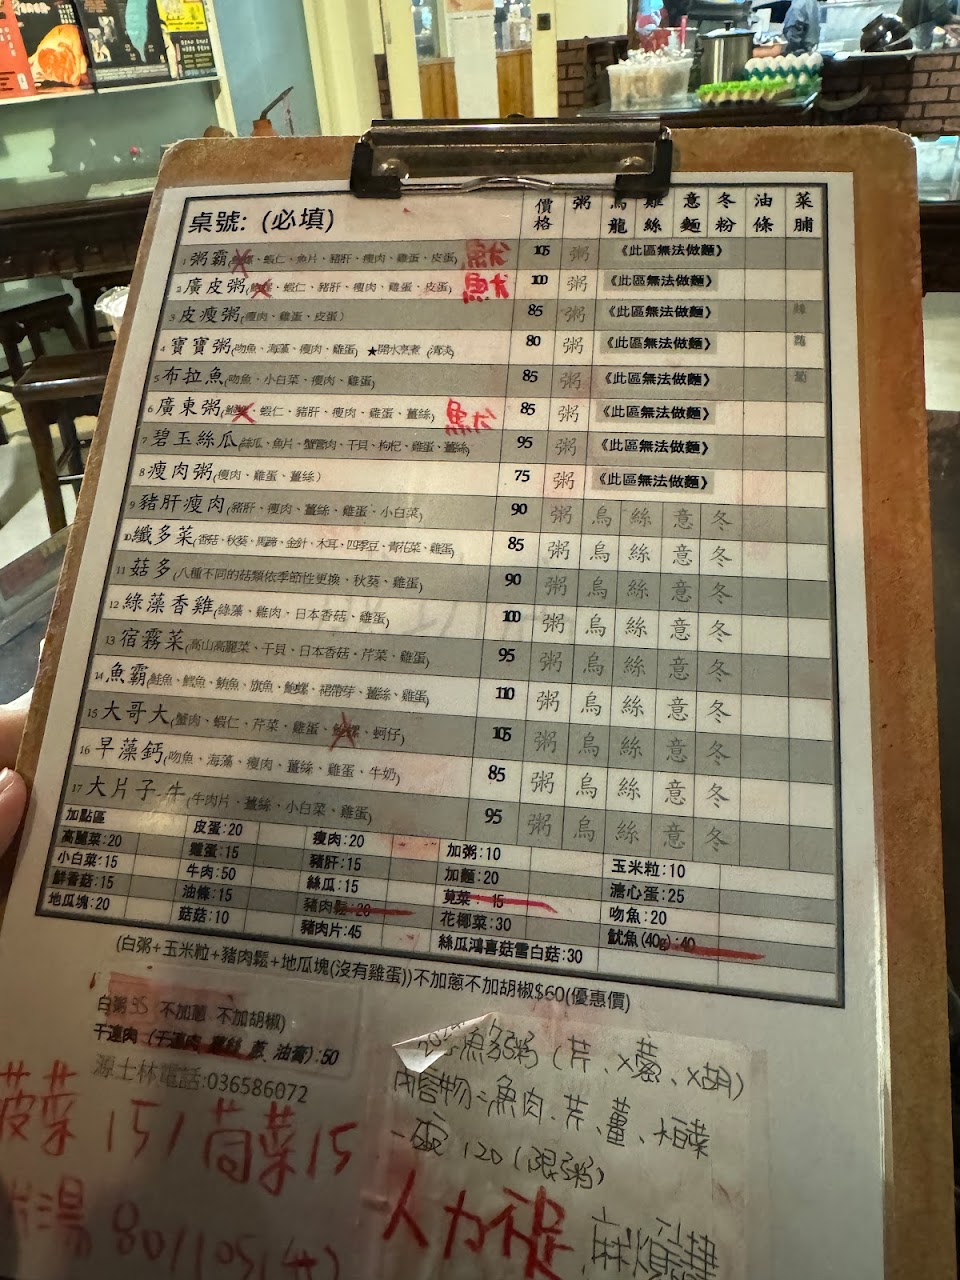 桌號: (必填) 價格 粥 烏龍 雞絲 意麵 冬粉 油條 菜脯
1 粥霸 、蝦仁、魚片、豬肝、瘦肉、雞蛋、皮蛋) 魷 105 粥 《此區無法做麵》
2 廣皮粥 、蝦仁、豬肝、瘦肉、雞蛋、皮蛋) 魷 100 粥 《此區無法做麵》
3 皮瘦粥(瘦肉、雞蛋、皮蛋) 85 粥 《此區無法做麵》
4 寶寶粥(吻魚、海藻、瘦肉、雞蛋) ★開水烹煮 (清淡) 80 粥 《此區無法做麵》
5 布拉魚(吻魚、小白菜、瘦肉、雞蛋) 85 粥 《此區無法做麵》
6 廣東粥 、蝦仁、豬肝、瘦肉、雞蛋、薑絲) 魷 85 粥 《此區無法做麵》
7 碧玉絲瓜(絲瓜、魚片、蟹管肉、干貝、枸杞、雞蛋、薑絲) 95 粥 《此區無法做麵》
8 瘦肉粥(瘦肉、雞蛋、薑絲) 75 粥 《此區無法做麵》
9 豬肝瘦肉(豬肝、瘦肉、薑絲、雞蛋、小白菜) 90 粥 烏 絲 意 冬
10 纖多菜(香菇、秋葵、馬蹄、金針、木耳、四季豆、青花菜、雞蛋) 85 粥 烏 絲 意 冬
11 菇多(八種不同的菇類依季節性更換、秋葵、雞蛋) 90 粥 烏 絲 意 冬
12 綠藻香雞(綠藻、雞肉、日本香菇、雞蛋) 100 粥 烏 絲 意 冬
13 宿霧菜(高山高麗菜、干貝、日本香菇、芹菜、雞蛋) 95 粥 烏 絲 意 冬
14 魚霸(鮭魚、鱈魚、鮪魚、旗魚、鮑螺、裙帶芽、薑絲、雞蛋) 110 粥 烏 絲 意 冬
15 大哥大(蟹肉、蝦仁、芹菜、雞蛋、鮑螺、蚵仔) 105 粥 烏 絲 意 冬
16 早藻鈣(吻魚、海藻、瘦肉、薑絲、雞蛋、牛奶) 85 粥 烏 絲 意 冬
17 大片子-牛(牛肉片、薑絲、小白菜、雞蛋) 95 粥 烏 絲 意 冬
加點區 皮蛋:20 瘦肉:20 加粥:10 玉米粒:10
高麗菜:20 雞蛋:15 豬肝:15 加麵:20 溏心蛋:25
小白菜:15 牛肉:50 絲瓜:15 莧菜 15 吻魚:20
鮮香菇:15 油條:15 豬肉鬆:20 花椰菜:30 魷魚(40g):40
地瓜塊:20 菇菇:10 豬肉片:45 絲瓜鴻喜菇雪白菇:30
(白粥+玉米粒+豬肉鬆+地瓜塊(沒有雞蛋))不加蔥不加胡椒$60(優惠價)
白粥35 不加蔥 不加胡椒)
干連肉 (干連肉 薑絲 蔥 油膏):50
源士林電話:036586072
魚粥 (芹、x蔥、x胡)
內容物:魚肉、芹、薑、
一碗 120 (限粥)
菠菜 15/茼菜15
湯 80/105(牛)
人力不足 麻煩請